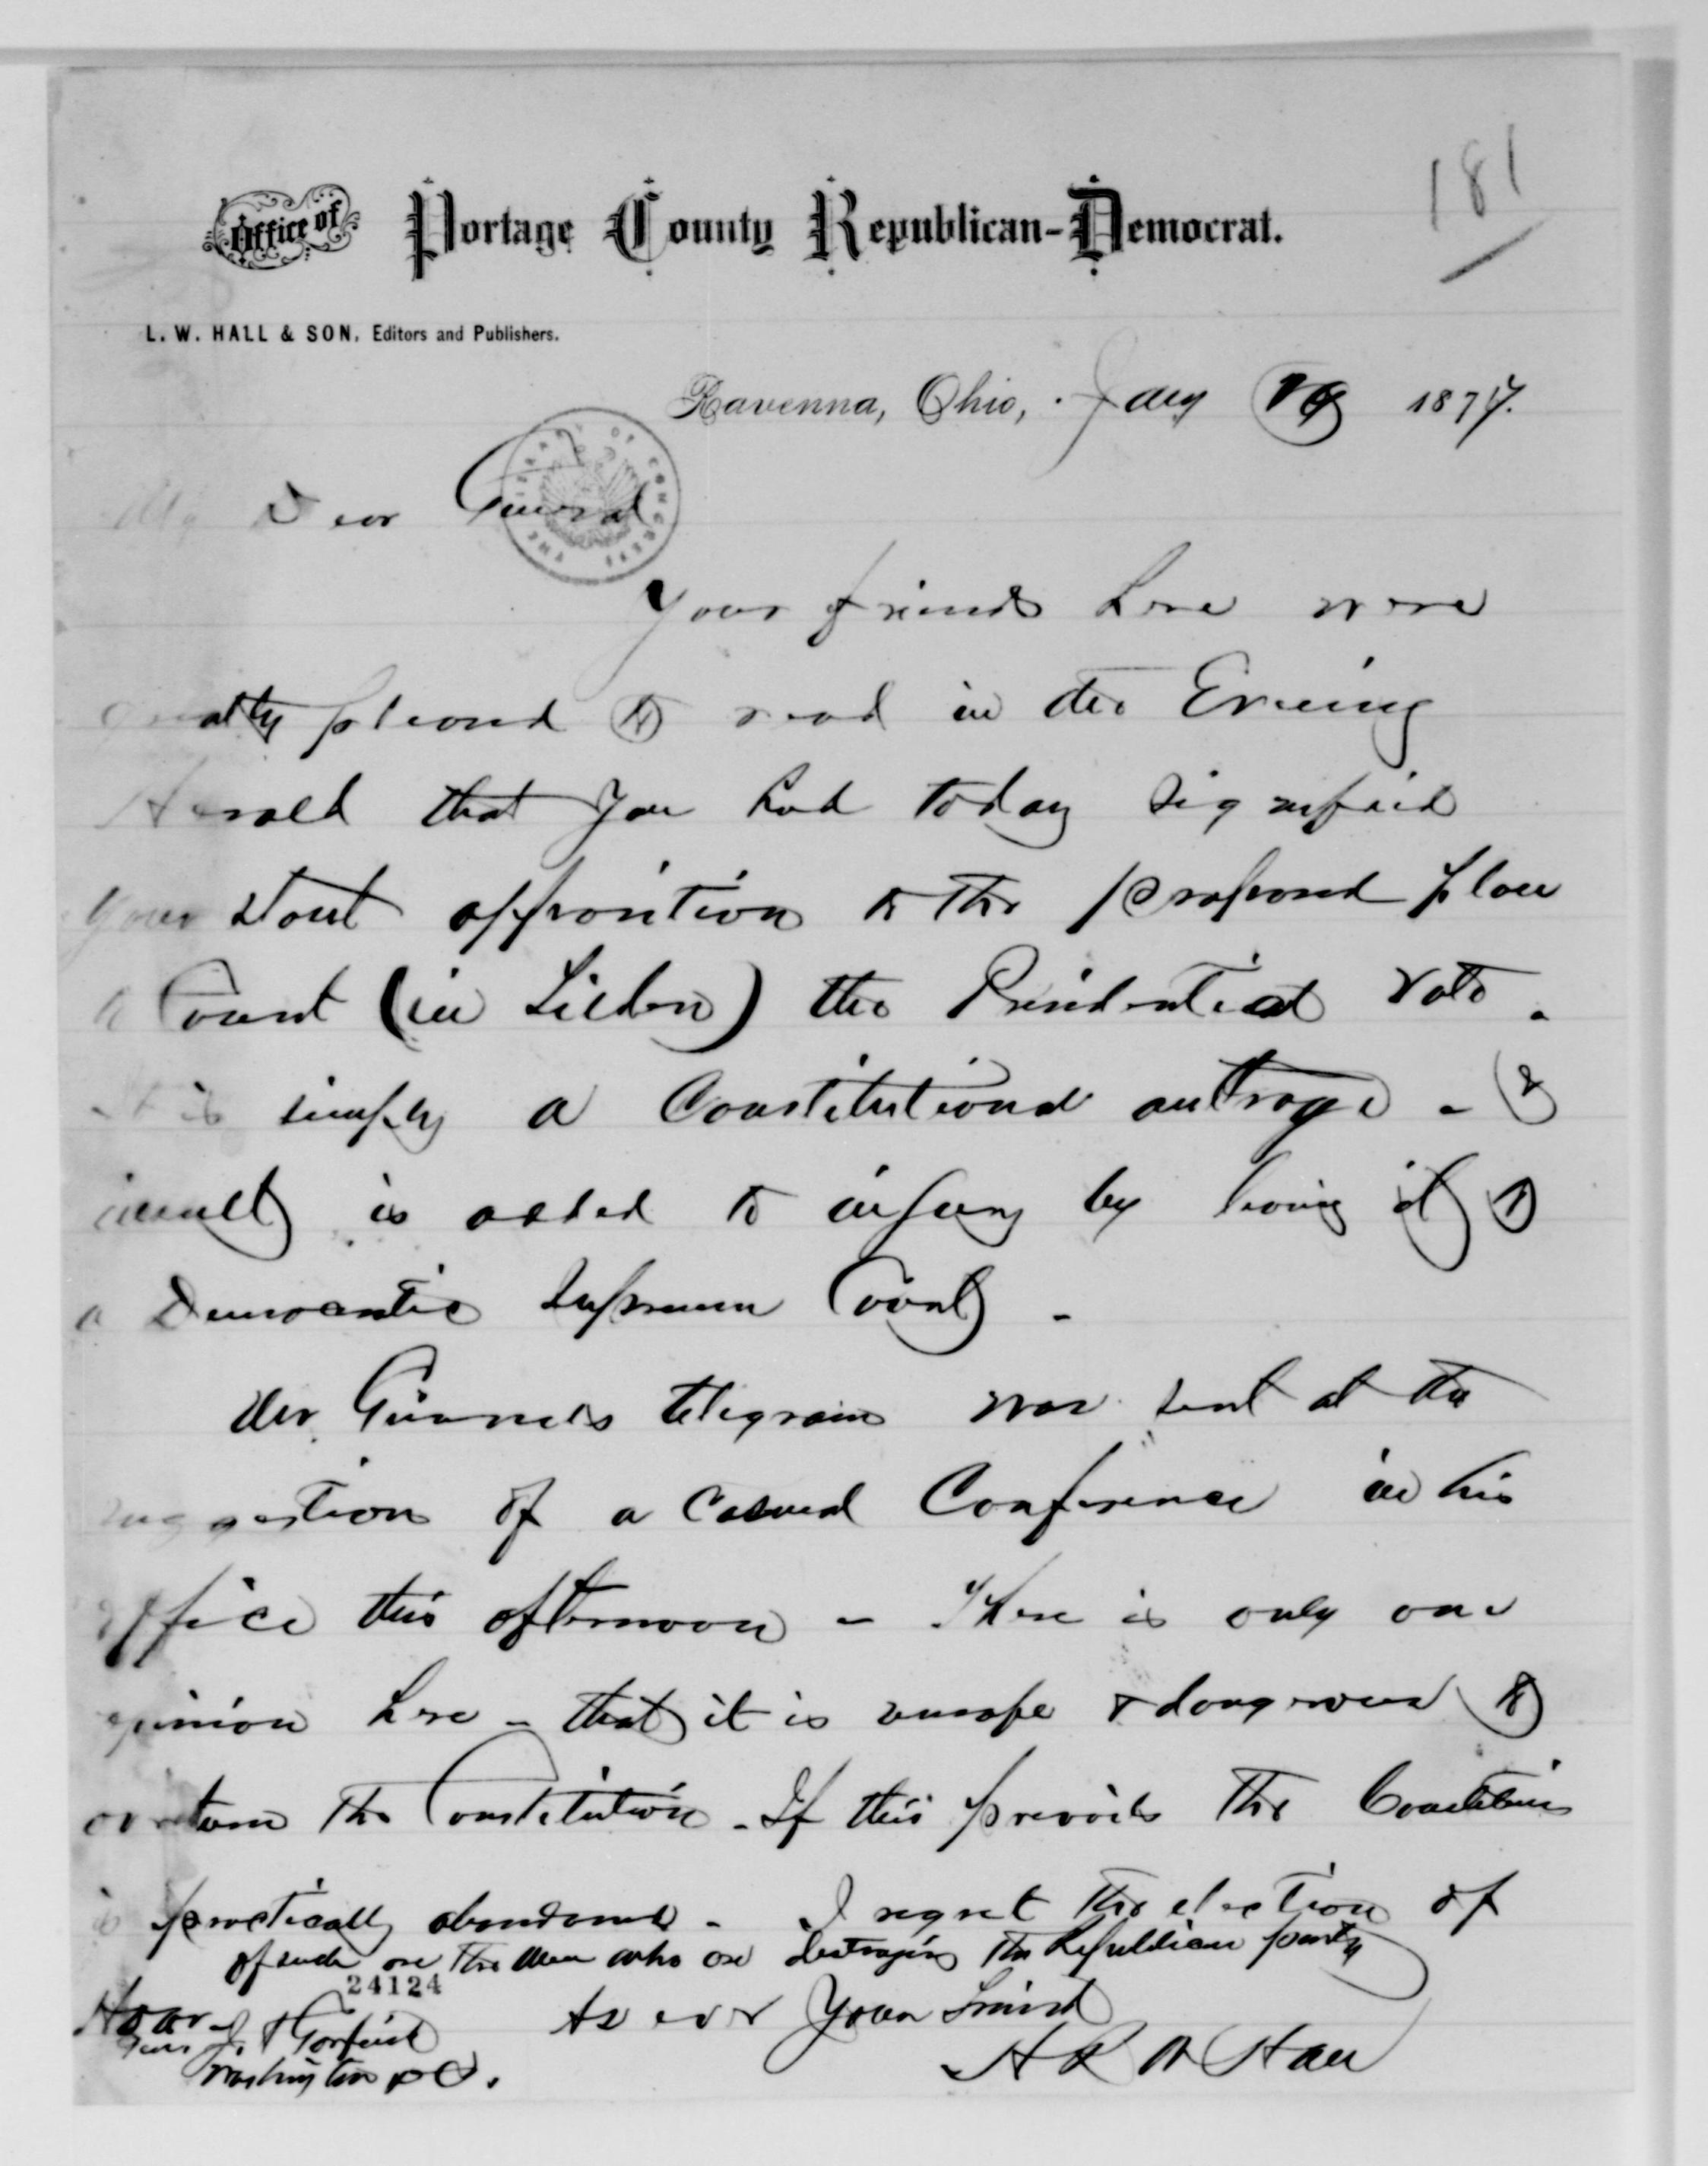 181
Office of Portage County Republican-Democrat.
L. W. HALL & SON, Editors and Publishers.
Ravenna, Ohio, Jany 19 1877.
THE LIBRARY OF CONGRESS
My Dear General
Your friends here were
greatly pleased to read in the Evening
Herald that you had today signified
your stout opposition to the proposed plan
to Count (in Tilden) the Presidential vote.
It is simply a Constitutional outrage - &
insult is added to injury by leaving it to
a Democratic Supreme Court -
Mr. telegram was sent at the
suggestion of a casual Conference in his
office this afternoon - There is only one
opinion here - that it is unsafe & dangerous to
overturn the Constitution - If this prevails the Constitution
is practically abandoned - I regret the election of
of such are the men who are destroying the Republican party
24124
Hoar -
Gen J. A Garfield
Washington DC.
As ever Your Friend
Hall